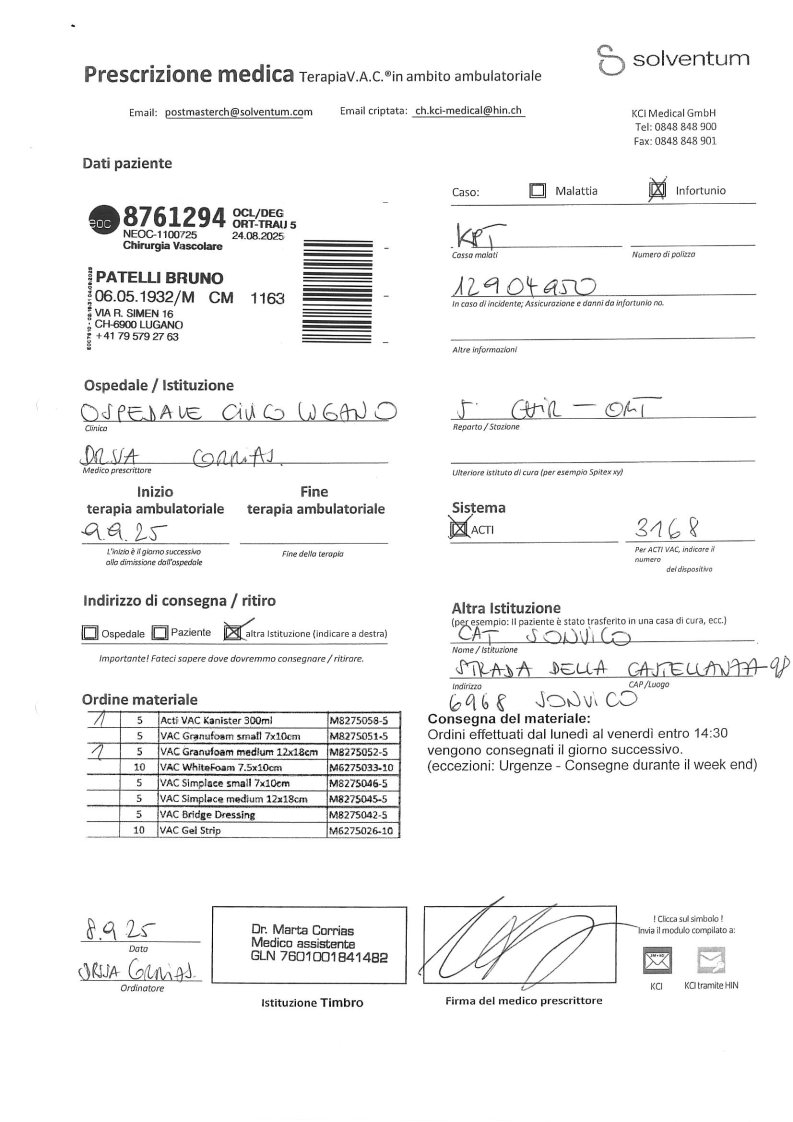 solventum
Prescrizione medica TerapiaV.A.C.®in ambito ambulatoriale
Email: postmasterch@solventum.com Email criptata: ch.kci-medical@hin.ch
KCI Medical GmbH
Tel: 0848 848 900
Fax: 0848 848 901
Dati paziente
eoc 8761294 OCL/DEG
ORT-TRAU 5
NEOC-1100725 24.08.2025
Chirurgia Vascolare
PATELLI BRUNO
06.05.1932/M CM 1163
VIA R. SIMEN 16
CH-6900 LUGANO
+41 79 579 27 63
Caso: Malattia Infortunio
KPT
Cassa malati Numero di polizza
12904950
In caso di incidente; Assicurazione e danni da infortunio no.
Altre informazioni
Ospedale / Istituzione
OSPEDALE CIVICO LUGANO
Clinica
DR.SSA CORRIAS
Medico prescrittore
5. CHIR - ORT
Reparto / Stazione
Ulteriore istituto di cura (per esempio Spitex xy)
Inizio
terapia ambulatoriale
Fine
terapia ambulatoriale
9.9.25
L'inizio è il giorno successivo
alla dimissione dall'ospedale
Fine della terapia
Sistema
ACTI 3168
Per ACTI VAC, indicare il
numero
del dispositivo
Indirizzo di consegna / ritiro
Ospedale Paziente altra Istituzione (indicare a destra)
Importante! Fateci sapere dove dovremmo consegnare / ritirare.
Altra Istituzione
(per esempio: Il paziente è stato trasferito in una casa di cura, ecc.)
CAT SONVICO
Nome / Istituzione
STRADA DELLA CASTELLANZA
Indirizzo CAP /Luogo
6968 SONVICO
Ordine materiale
1 5 Acti VAC Kanister 300ml M8275058-5
5 VAC Granufoam small 7x10cm M8275051-5
1 5 VAC Granufoam medium 12x18cm M8275052-5
10 VAC WhiteFoam 7.5x10cm M6275033-10
5 VAC Simplace small 7x10cm M8275046-5
5 VAC Simplace medium 12x18cm M8275045-5
5 VAC Bridge Dressing M8275042-5
10 VAC Gel Strip M6275026-10
Consegna del materiale:
Ordini effettuati dal lunedì al venerdì entro 14:30
vengono consegnati il giorno successivo.
(eccezioni: Urgenze - Consegne durante il week end)
8.9.25
Data
DR.SSA CORRIAS
Ordinatore
Dr. Marta Corrias
Medico assistente
GLN 7601001841482
Istituzione Timbro
Firma del medico prescrittore
! Clicca sul simbolo !
Invia il modulo compilato a:
KCI KCI tramite HIN